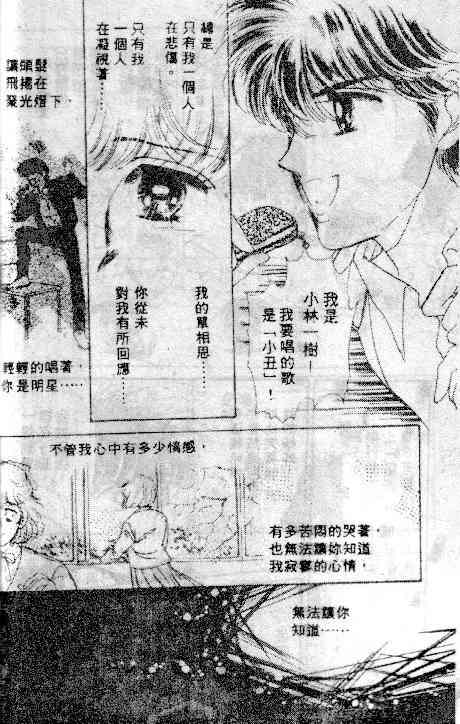 我是
小林一樹—
我要唱的歌
是「小丑」!
總是
只有我一個人
在悲傷。
只有我
一個人
在凝視著……
我的單相思……
你從未
對我有所回應……
讓頭髮
飛揚在
聚光燈下,
輕輕的唱著,
你是明星……
不管我心中有多少情感,
有多苦悶的哭著,
也無法讓妳知道
我寂寥的心情,
無法讓你
知道……